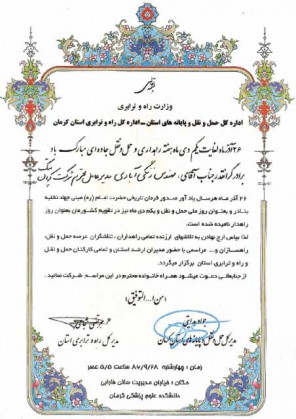 وزارت راه و ترابری
اداره کل حمل و نقل و پایانه های استان ــ اداره کل راه و ترابری استان کرمان
۲۶ آذر ماه لغایت یکم دی ماه هفته راهداری و حمل و نقل جاده ای مبارک باد
برادر گرانقدر جناب آقای مهندس مدیر عامل محترم شرکت
۲۶ آذر ماه هرسال یاد آور صدور فرمان تاریخی حضرت امام (ره) مبنی جهاد تخلیه
بنادر و بعنوان روز ملی حمل و نقل و یکم دی ماه نیز در تقویم کشورمان بعنوان روز
راهدار نامیده شده است.
لذا بپاس ارج نهادن به تلاشهای ارزنده تمامی راهداران ، تلاشگران عرصه حمل و نقل،
راهسازان و... مراسمی با حضور مدیران ارشد استان و تمامی کارکنان حمل و نقل
و راه و ترابری استان برگزار میگردد.
از جنابعالی دعوت میشود همراه خانواده محترم در این مراسم شرکت نمائید.
«من ا... التوفیق»
مدیر کل راه و ترابری استان
زمان : چهارشنبه ۸۷/۹/۲۸ ساعت ۵/۵ عصر
مکان : خیابان مدیریت سالن فارابی
دانشکده علوم پزشکی کرمان